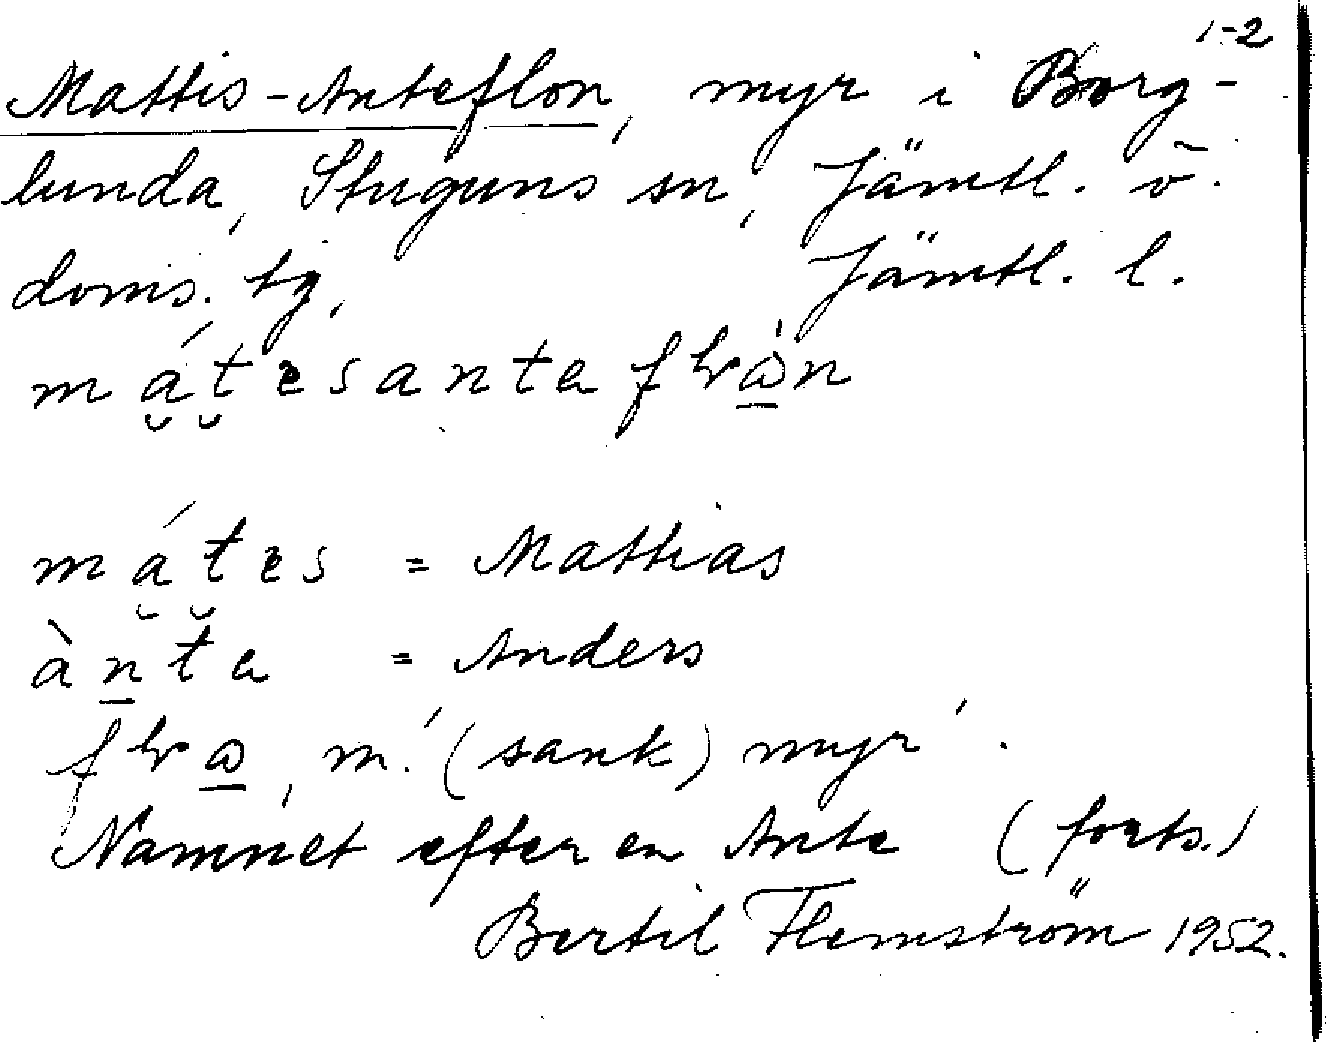 1-2
Mattis-Anteflon, myr i Borg-
lunda, Stuguns sn, Jämtl. v.
doms. tg, Jämtl. l.
mátesanteflån
mátes = Mattias
ànte = Anders
m. '(sank) myr'.
Namnet efter en Ante (forts.)
Bertil Flemström 1952.